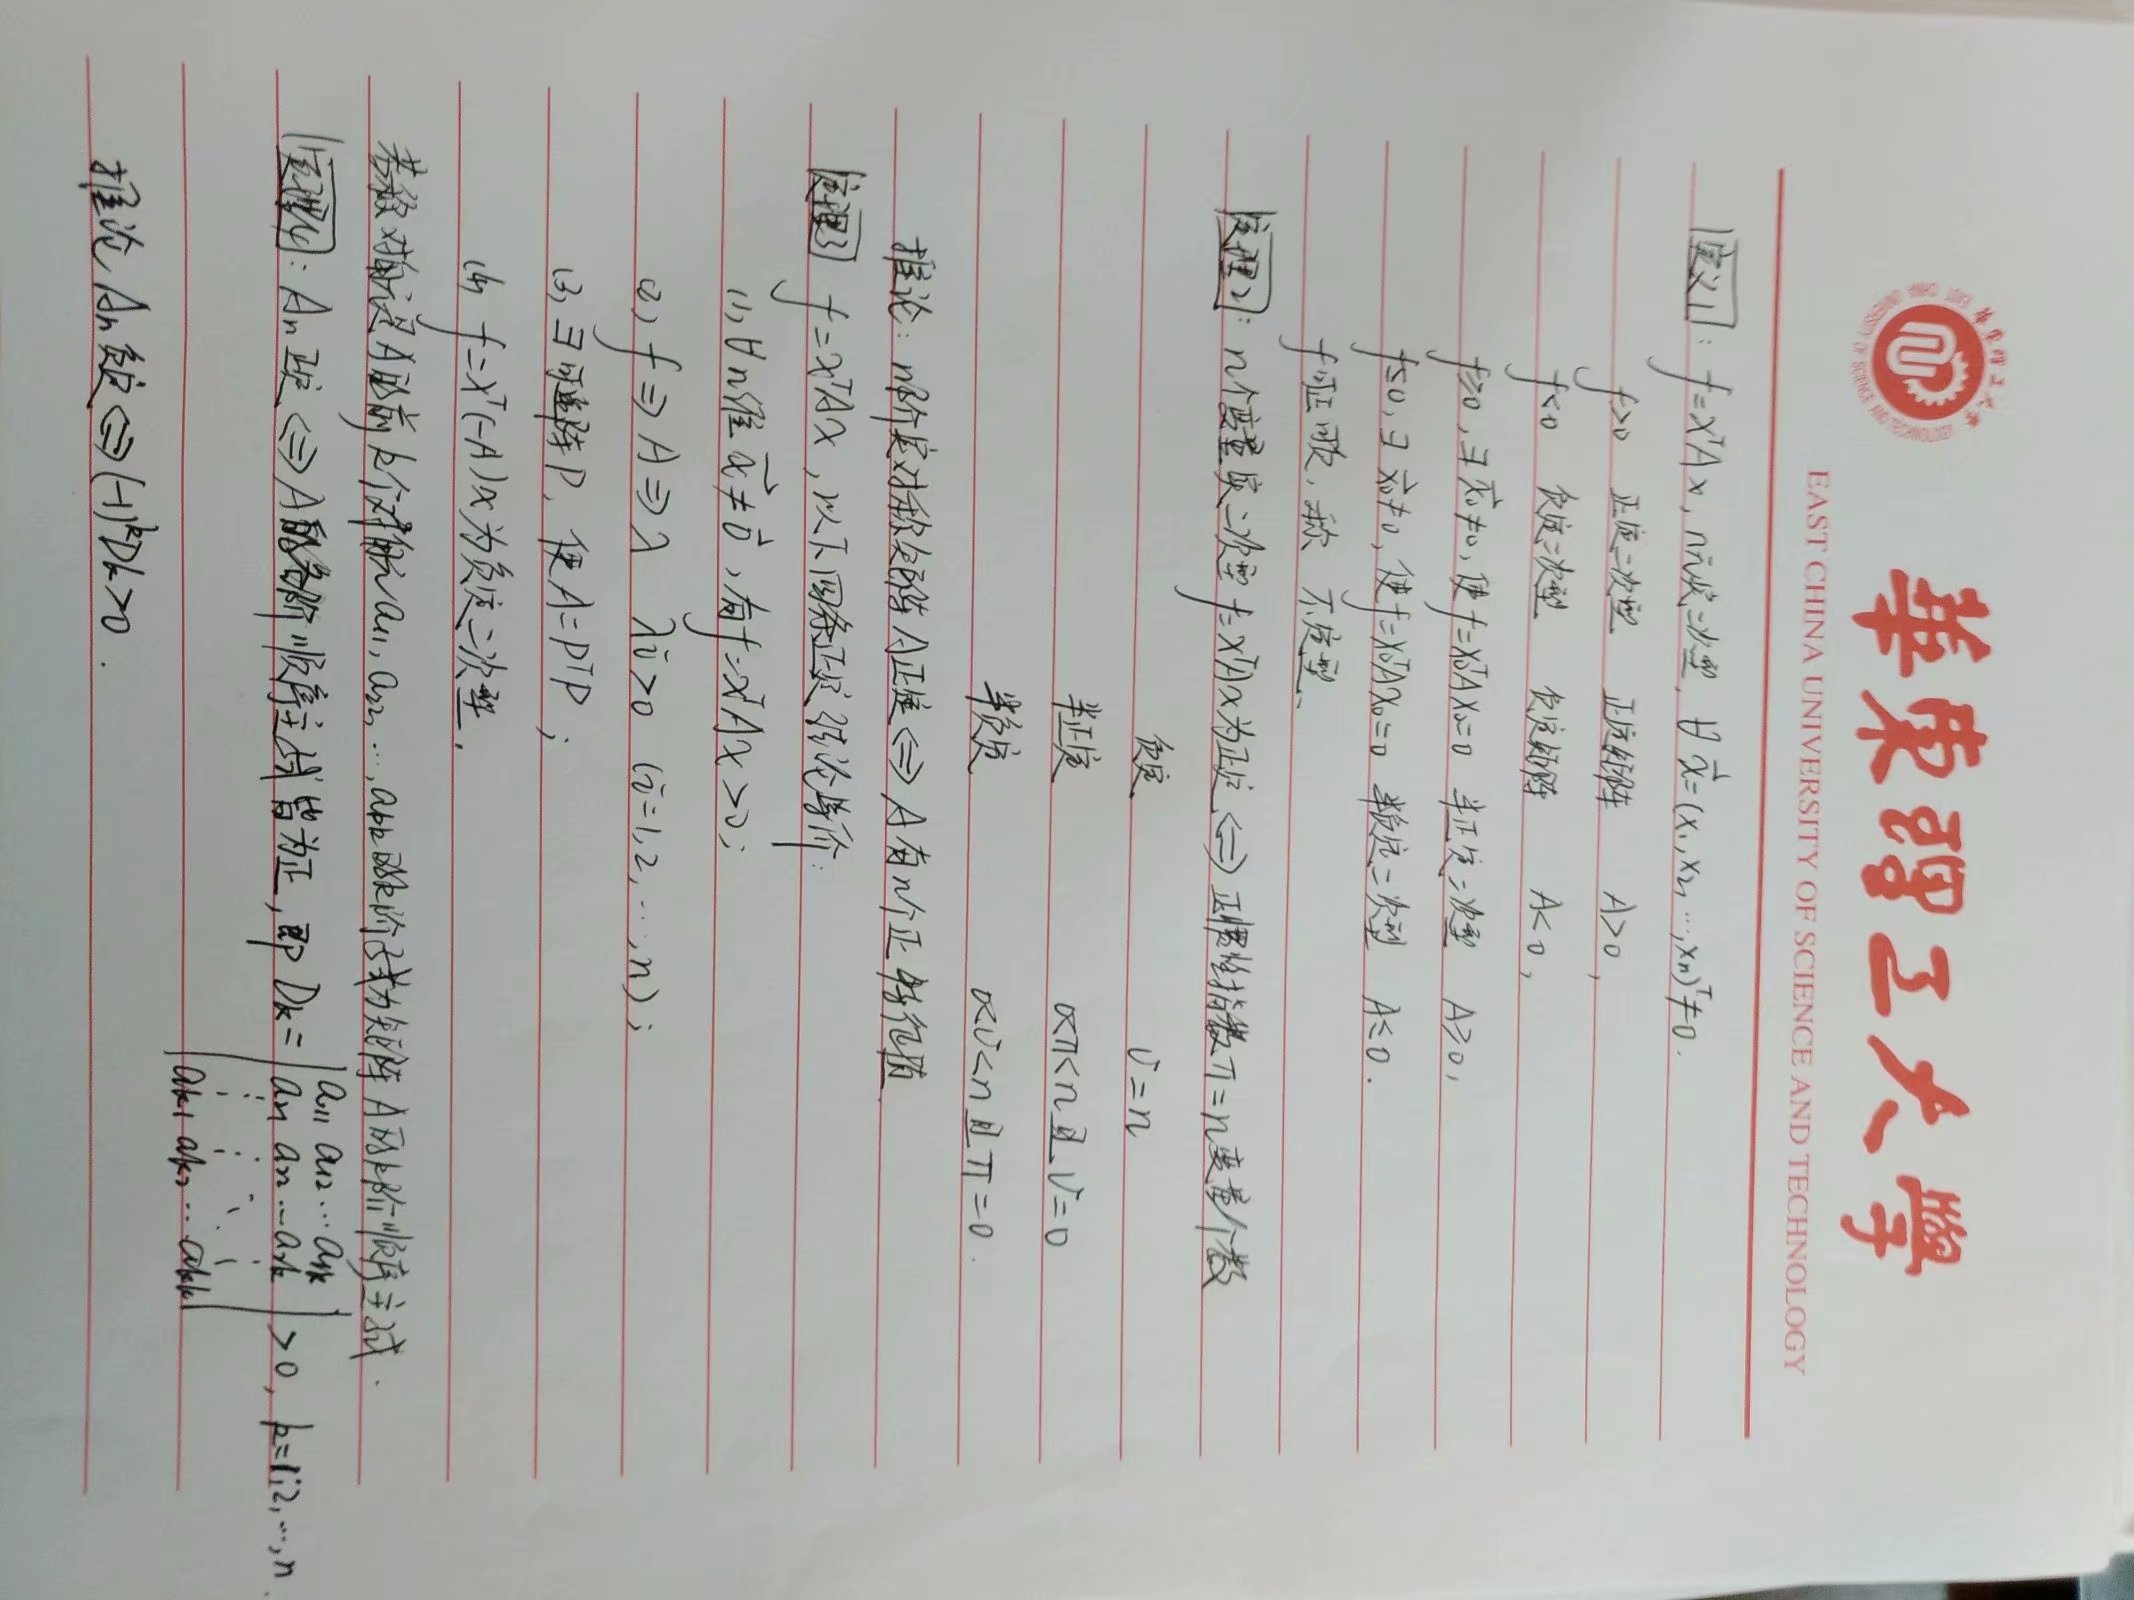 華東理工大學
EAST CHINA UNIVERSITY OF SCIENCE AND TECHNOLOGY
定义1: f=xᵀAx, n元实二次型, ∀ x⃗=(x₁,x₂,…,xₙ)ᵀ≠0.
f>0 正定二次型 正定矩阵 A>0,
f<0 负定二次型 负定矩阵 A<0,
f≥0, ∃ x⃗₀≠0, 使f=x₀ᵀAx₀=0 半正定二次型 A≥0,
f≤0, ∃ x⃗₀≠0, 使f=x₀ᵀAx₀=0 半负定二次型 A≤0.
f可正可负, 称 不定型.
定理2: n个变量实二次型 f=xᵀAx为正定 ⇔ 正惯性指数π=n变量个数
负定 υ=n
半正定 π<n 且 υ=0
半负定 υ<n 且 π=0.
推论: n阶实对称矩阵A正定 ⇔ A有n个正特征值
定理3 f=xᵀAx, 以下四条正定结论等价:
(1), ∀ n维 x⃗≠0⃗, 有f=xᵀAx>0;
(2), f⇒A⇒λ λi>0 (i=1,2,…,n);
(3), ∃可逆阵P, 使A=PᵀP;
(4) f=xᵀ(-A)x为负定二次型.
A的前k个对角元a₁₁, a₂₂, …, akk的k阶子式为矩阵A的k阶顺序主式.
定理4: Aₙ正定 ⇔ A的各阶顺序主式皆为正, 即 Dk= |a₁₁ a₁₂ … a₁k
a₂₁ a₂₂ … a₂k| >0, k=1,2,…,n.
ak₁ ak₂ … akk|
推论 Aₙ负定⇔(-1)ᵏDk>0.